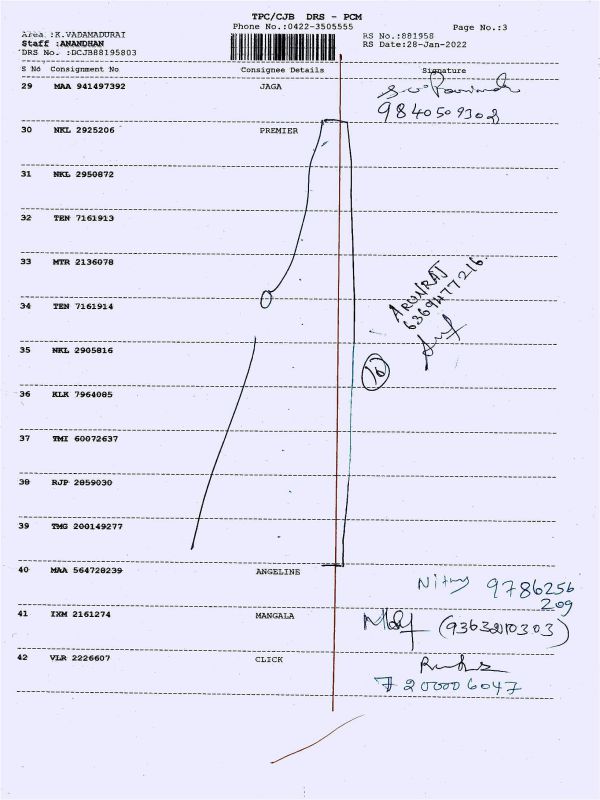 TPC/CJB DRS - PCM
Phone No.:0422-3505555
Page No.:3
Area :K.VADAMADURAI
Staff :ANANDHAN
DRS No. :DCJB88195803
RS No.:881958
RS Date:28-Jan-2022
S No Consignment No Consignee Details Signature
29 MAA 941497392 JAGA
9840509308
30 NKL 2925206 PREMIER
31 NKL 2950872
32 TEN 7161913
33 MTR 2136078
ARUNRAJ
6369477216
34 TEN 7161914
35 NKL 2905816
10
36 KLK 7964085
37 TMI 60072637
38 RJP 2859030
39 TMG 200149277
40 MAA 564728239 ANGELINE
9786256
209
41 IXM 2161274 MANGALA
(9363210303)
42 VLR 2226607 CLICK
7200006047